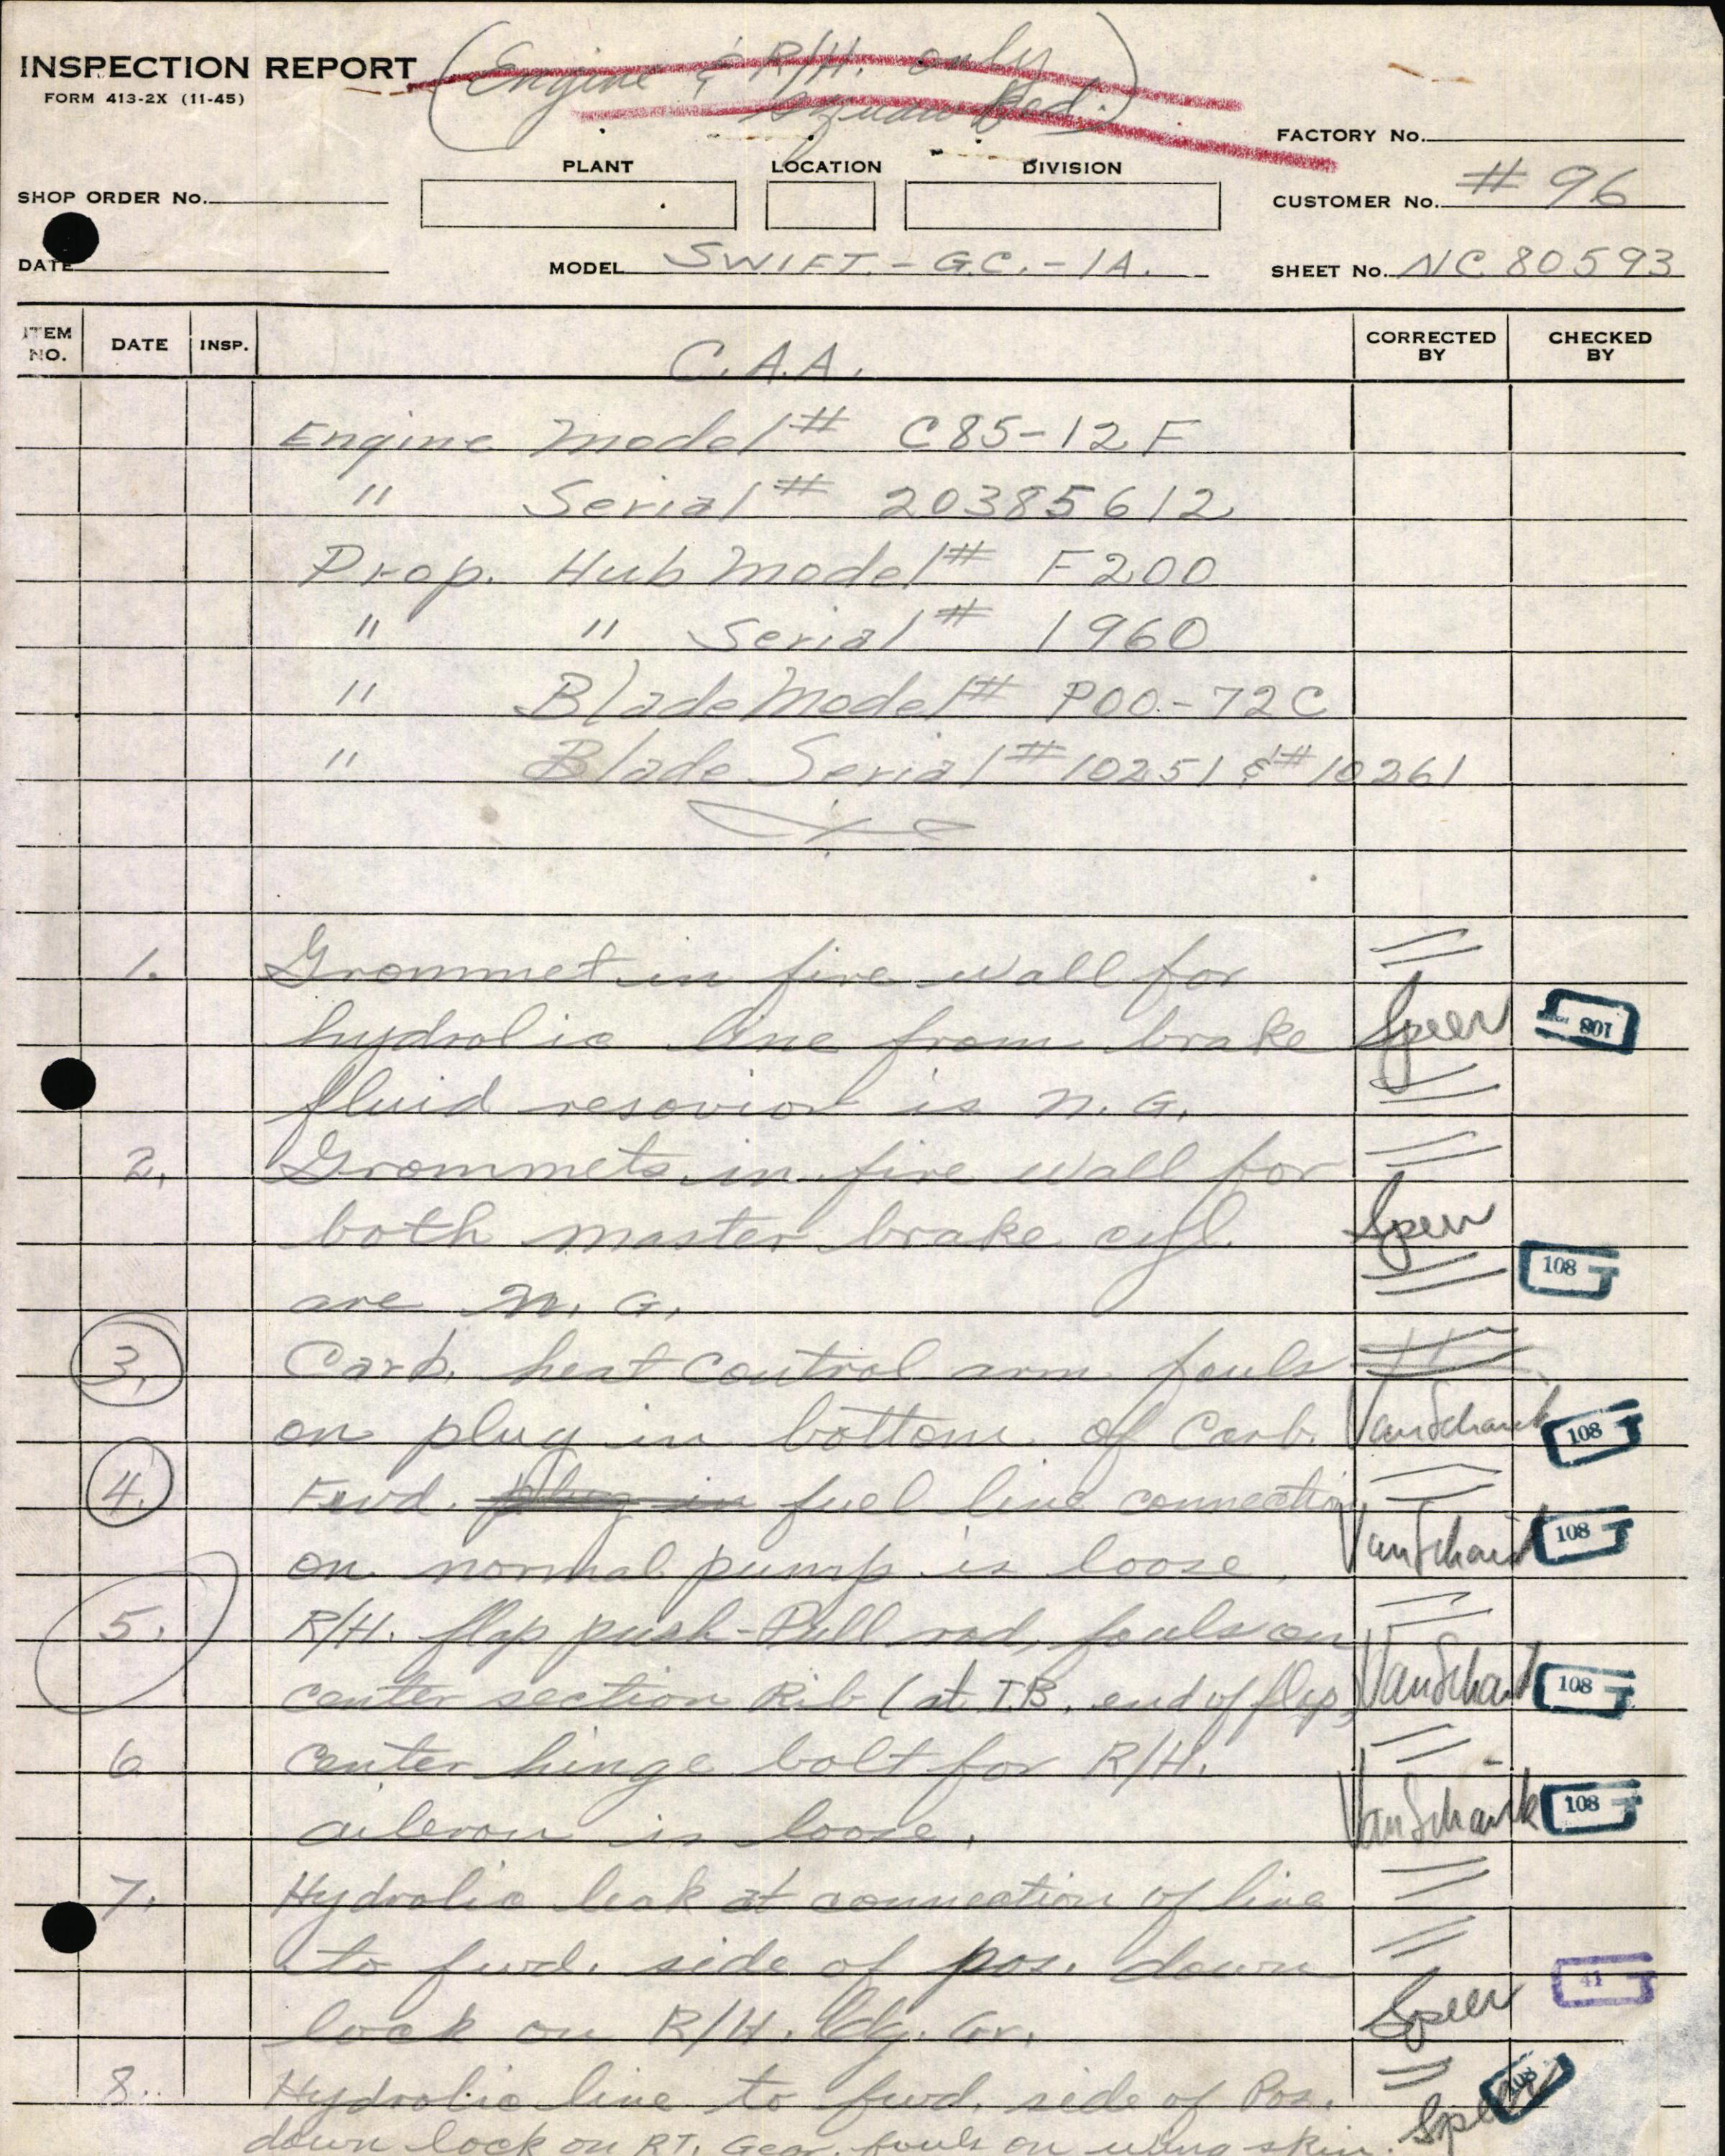 INSPECTION REPORT
FORM 413-2X (11-45)
(Engine & R/H. only
Squawked.)
FACTORY No.
PLANT LOCATION DIVISION
SHOP ORDER No.
CUSTOMER No. # 96
DATE
MODEL SWIFT.-G.C.-1A.
SHEET No. NC 80593
ITEM NO. DATE INSP. C.A.A. CORRECTED BY CHECKED BY
Engine Model # C85-12F
" Serial # 20385612
Prop. Hub Model # F200
" " Serial # 1960
" Blade Model # P00.-72C
" Blade Serial # 10251 & # 10261
1. Grommet in fire wall for
hydrolic line from brake Speer 108
fluid resovior is N.G.
2. Grommets in fire wall for
both master brake cyl. Speer
are N.G. 108
3. Carb. heat control arm fouls
on plug in bottom of Carb. VanSchaick 108
4. Fwd. plug in fuel line connection
on normal pump is loose. VanSchaick 108
5. R/H. flap push-Pull rod, fouls on
center section Rib (at I.B. end of flap) VanSchaick 108
6 Center hinge bolt for R/H.
aileron is loose. VanSchaick 108
7. Hydrolic leak at connection of line
to fwd. side of pos. down 41
lock on R/H. Ldg. Gr. Speer
8. Hydrolic line to fwd. side of Pos. 108
down lock on RT. Gear. fouls on wing skin. Speer